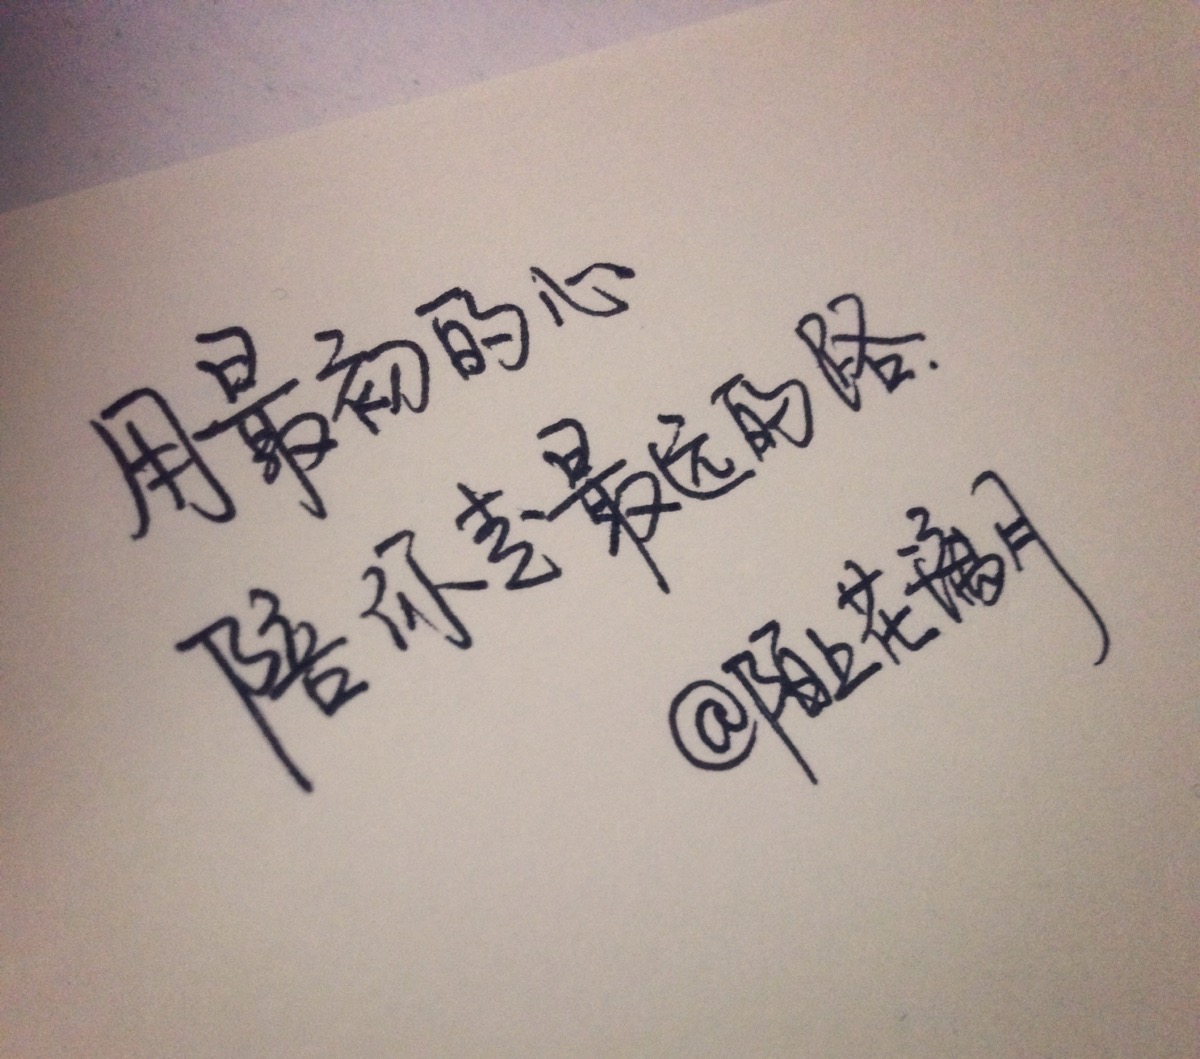 用最初的心
陪你走最远的路.
@陌上花月